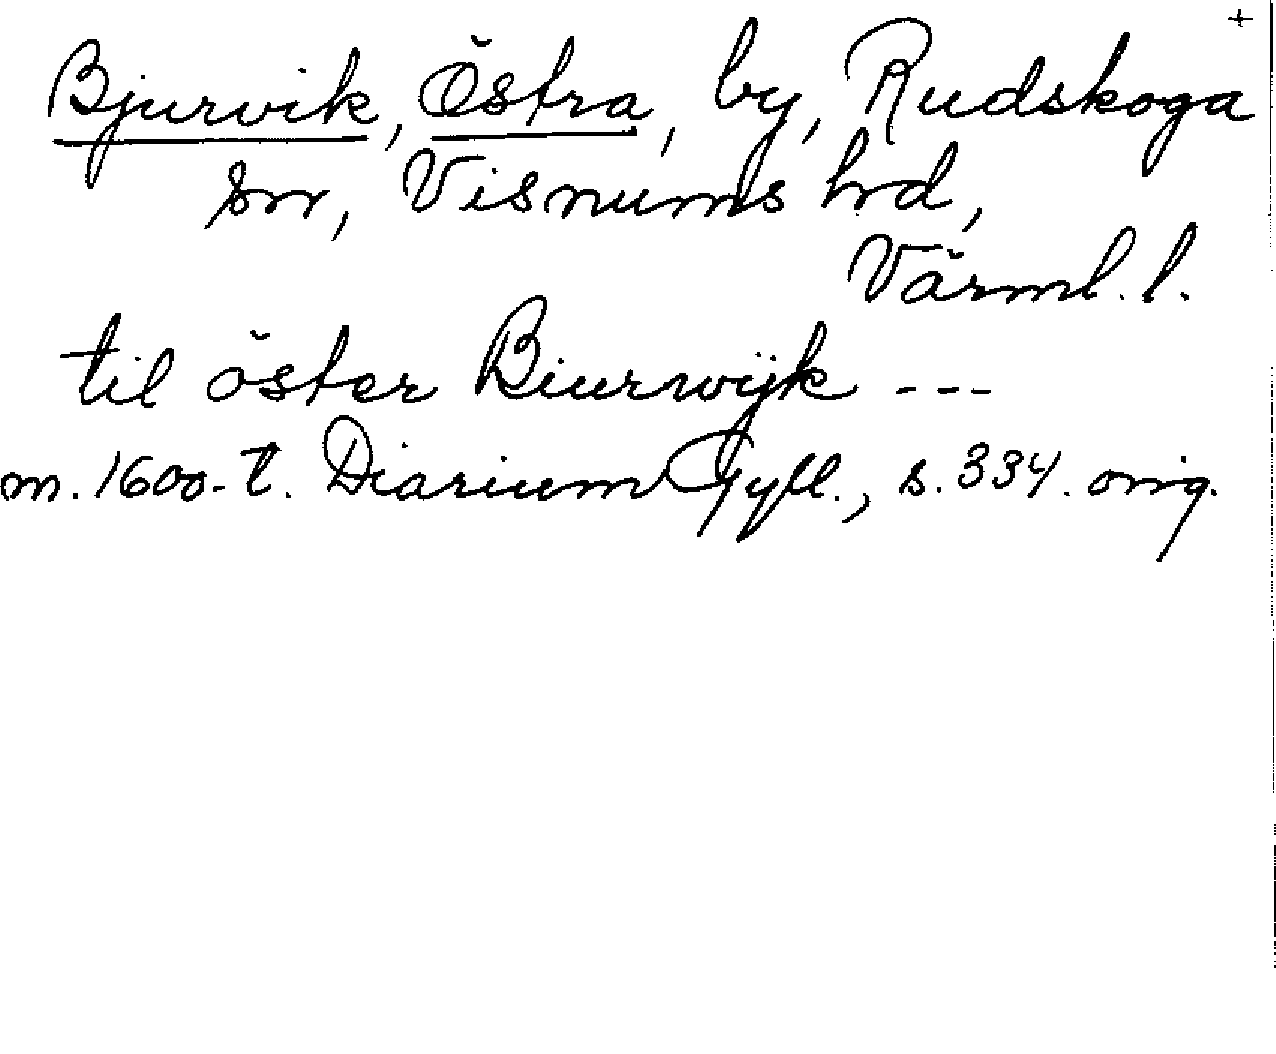 +
Bjurvik, Östra, by, Rudskoga
sn, Visnums hrd,
Värml. l.
til öster Biurwijk ---
m. 1600-t. Diarium Gyll., s. 334. orig.